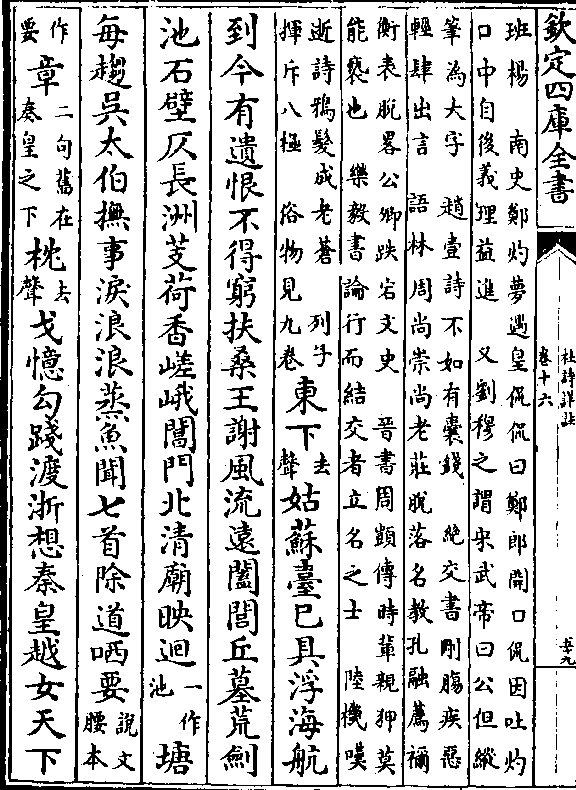 欽定四庫全書
杜詩詳註
卷十六
班楊 南史鄭灼夢遇皇侃侃曰鄭郎開口侃因吐灼
口中自後義理益進 又劉穆之謂宋武帝曰公但縱
筆為大字 趙壹詩不如有囊錢 絶交書剛腸疾惡
輕肆出言 語林周尚崇尚老莊脫落名教孔融薦禰
衡表脫畧公卿跌宕文史 晉書周顗傳時輩親狎莫
能褻也 樂毅書論行而結交者立名之士 陸機嘆
逝詩鴉髮成老蒼 列子
揮斥八極 俗物見九卷
東下去聲姑蘇臺已具浮海航
到今有遺恨不得窮扶桑王謝風流遠闔閭丘墓荒劍
池石壁仄長洲芰荷香嵯峨閶門北清廟映迴一作池塘
每趨吳太伯撫事淚浪浪蒸魚聞匕首除道哂要說文腰本
作要章二句舊在秦皇之下枕去聲戈憶勾踐渡浙想秦皇越女天下